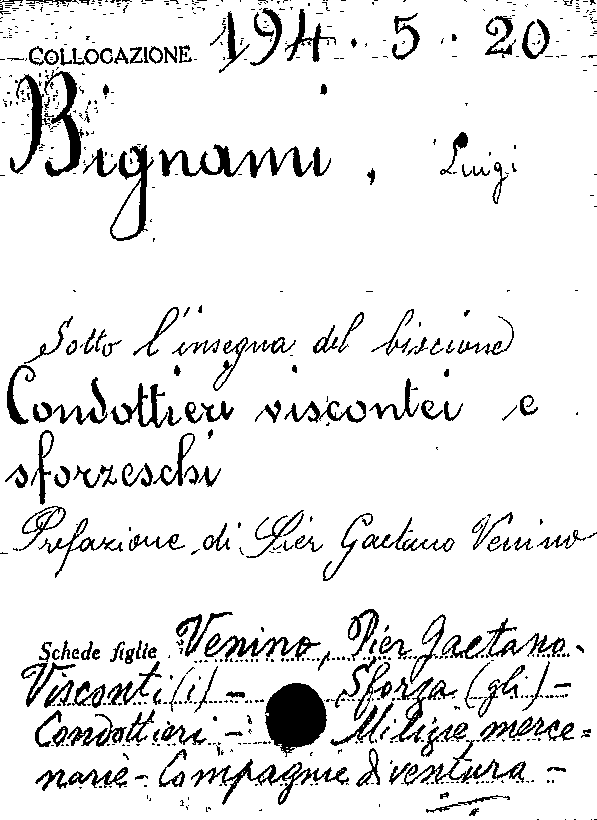 COLLOCAZIONE 194 · 5 · 20
Bignami, Luigi
Sotto l'insegna del biscione
Condottieri viscontei e
sforzeschi
Prefazione di Pier Gaetano Venino
Schede figlie Venino, Pier Gaetano.
Visconti (i) - Sforza (gli) -
Condottieri - Milizie merce=
narie - Compagnie di ventura -